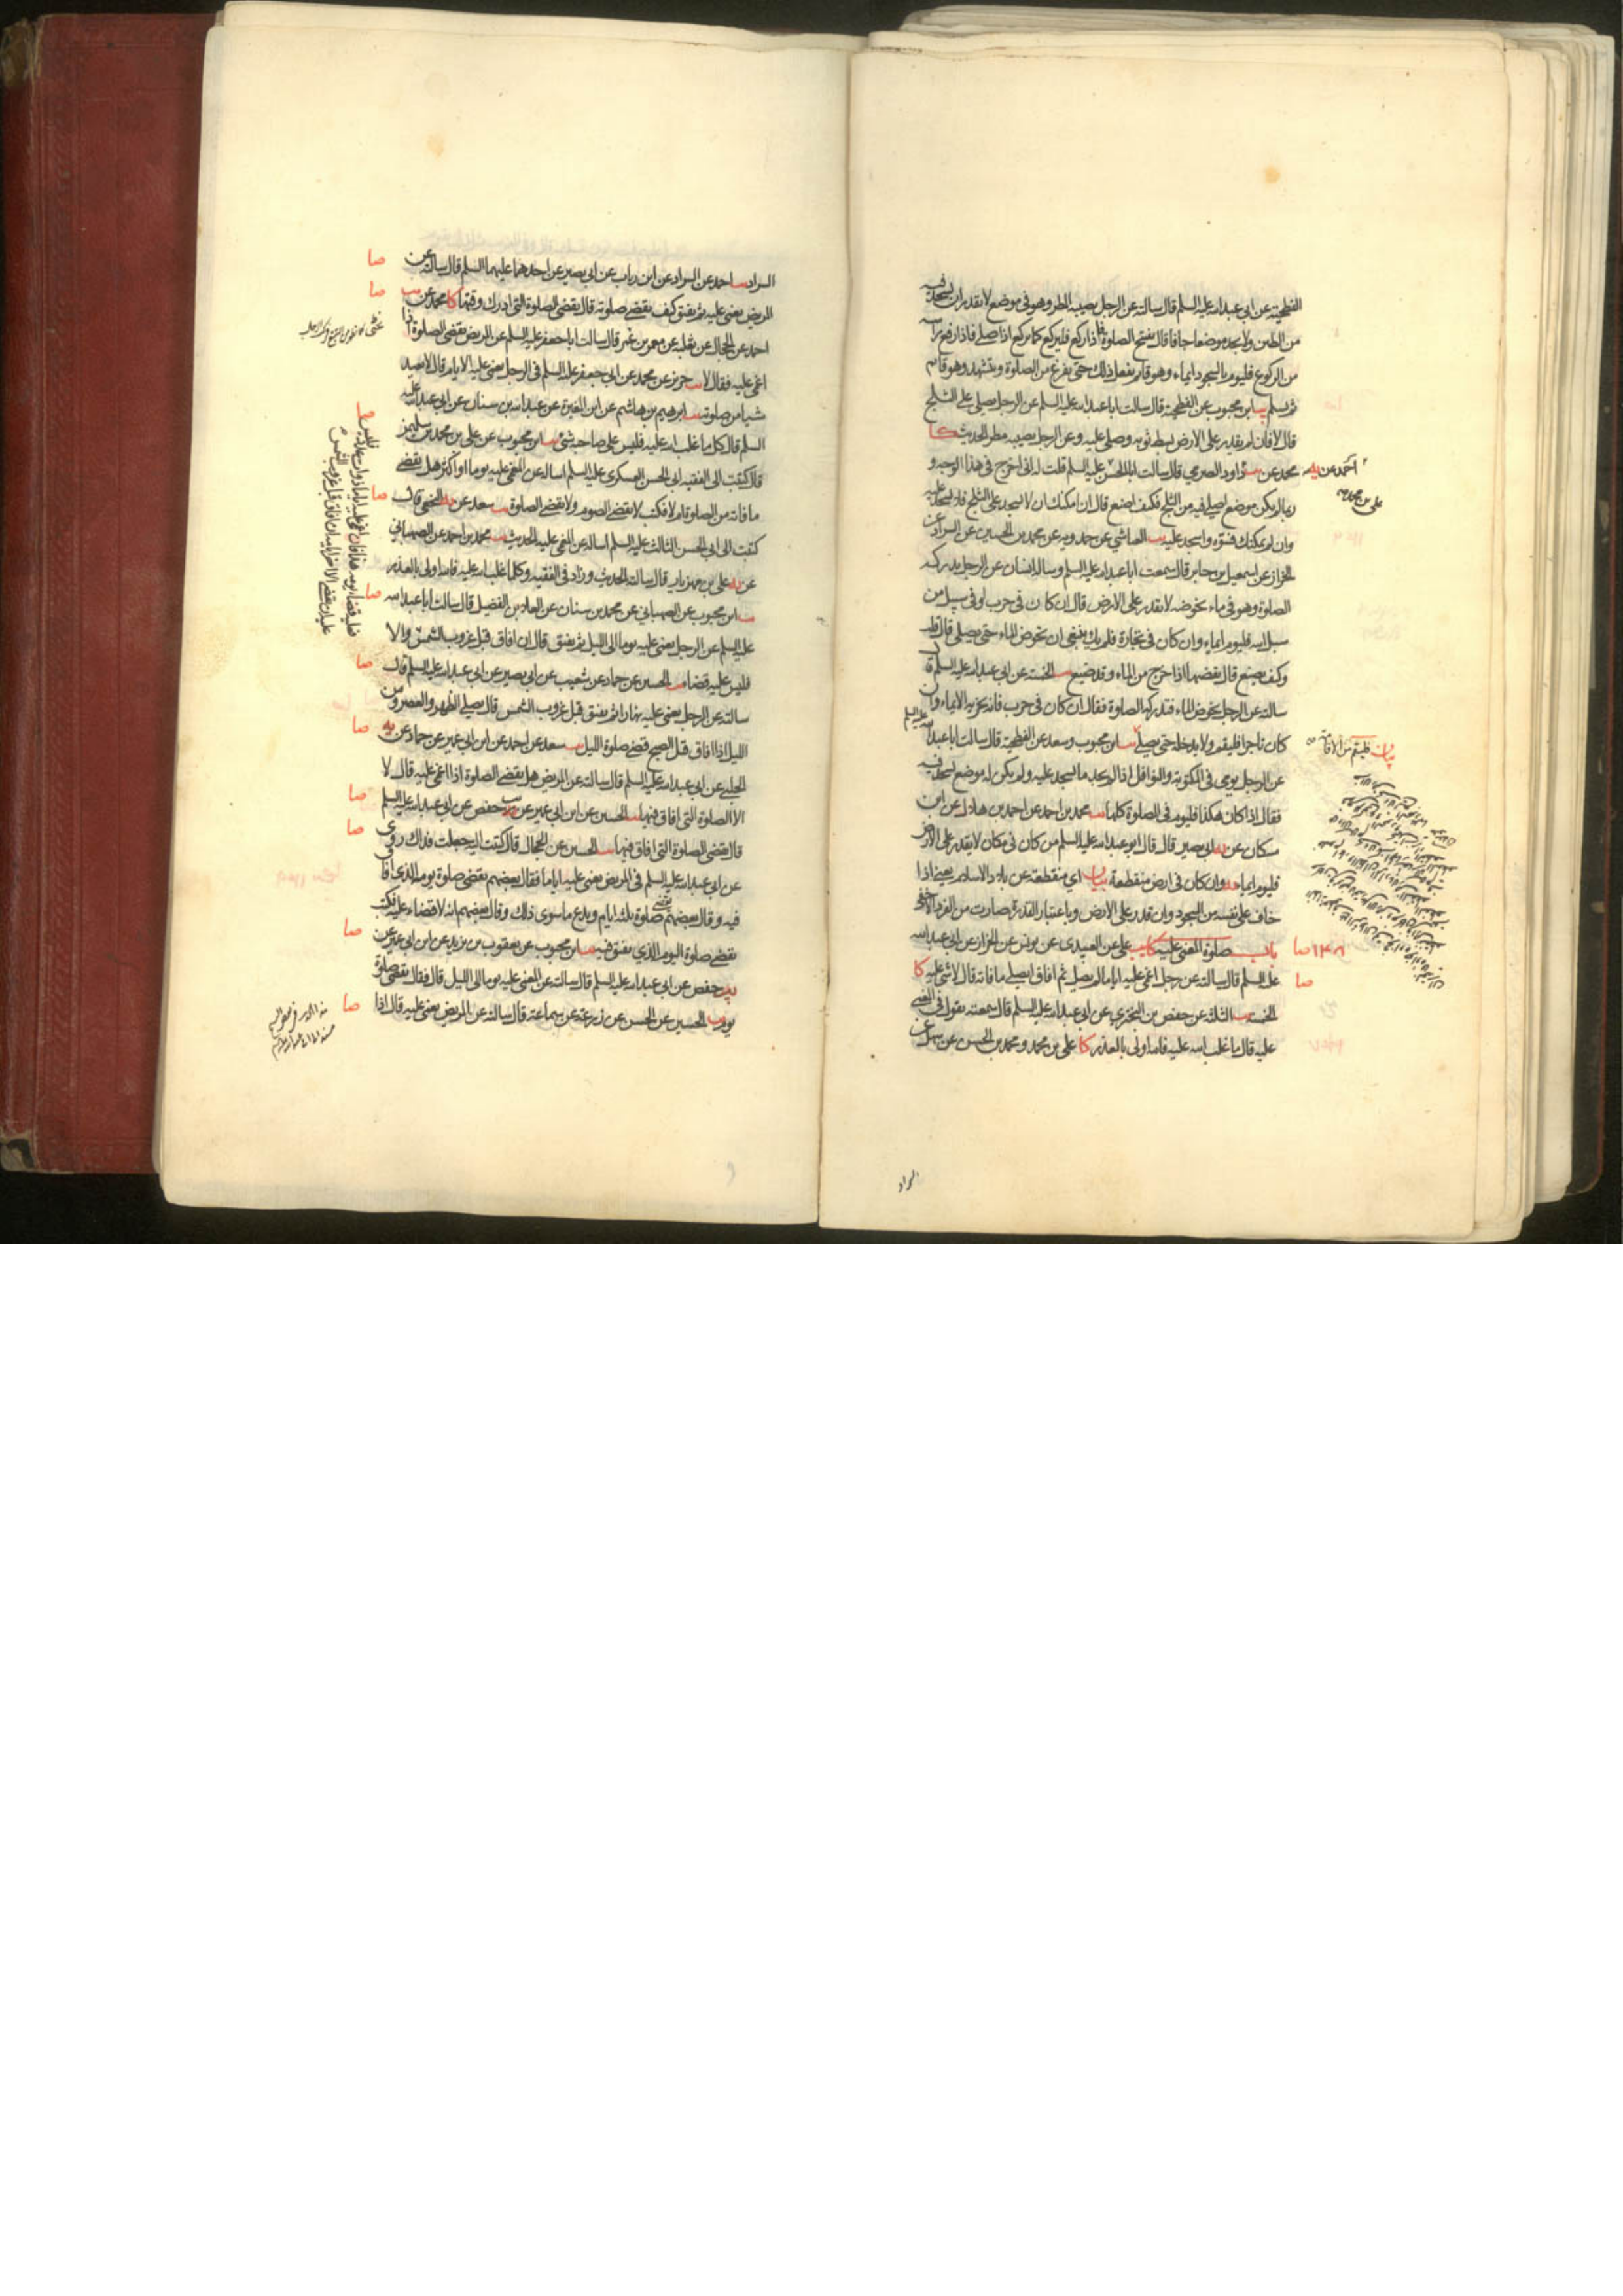 الفطحية عن ابي عبد الله عليه السلم قال سالته عن الرجل يصيبه المطر وهو في موضع لا يقدر ان يسجد فيه
من الطين ولا يجد موضعا جافا قال يفتتح الصلوة فاذا ركع فليركع كما يركع اذا صلى فاذا رفع راسه
من الركوع فليوم بالسجود ايماء وهو قائم يفعل ذلك حتى يفرغ من الصلوة ويتشهد وهو قائم
ثم يسلم يب ابن محبوب عن الفطحية قال سالت ابا عبد الله عليه السلم عن الرجل يصلي على الثلج
قال لا فان لم يقدر على الارض بسط ثوبه وصلى عليه وعن الرجل يصيبه مطر الحديث كا
محمد عن داود الصرمي قال سالت ابا الحسن عليه السلم قلت له اني اخرج في هذا الوجه و
احمد عن يه
علي بن محمد
ربما لم يكن موضع اصلي فيه من الثلج فكيف اصنع قال ان امكنك ان لا تسجد على الثلج فلا تسجد عليه
وان لم يمكنك فسوه واسجد عليه يب العياشي عن حمدويه عن محمد بن الحسين عن السراد عن
الخزاز عن اسمعيل بن جابر قال سمعت ابا عبد الله عليه السلم وساله انسان عن الرجل يدركه
الصلوة وهو في ماء يخوضه لا يقدر على الارض قال ان كان في حرب او في سبيل من
سبل الله فليوم ايماء وان كان في تجارة فلم يك ينبغي ان يخوض الماء حتى يصلي قال قلت
وكيف يصنع قال يقضيها اذا خرج من الماء وقد ضيع يب الخمسة عن ابي عبد الله عليه السلم قال
سالته عن الرجل يخوض الماء فتدركه الصلوة فقال ان كان في حرب فانه يجزيه الايماء وان
كان تاجرا فليقم ولا يدخله حتى يصلي يب ابن محبوب وسعد عن الفطحية قال سالت ابا عبد الله
عليه السلم
بيان فليقم من الاقامة
عن الرجل يومي في المكتوبة والنوافل اذا لم يجد ما يسجد عليه ولم يكن له موضع يسجد فيه
فقال اذا كان هكذا فليوم في الصلوة كلها يب محمد بن احمد عن احمد بن هلال عن ابن
مسكان عن ابي بصير قال قال ابو عبد الله عليه السلم من كان في مكان لا يقدر على الارض
فليوم ايماء يه وان كان في ارض منقطعة بيان اي منقطعة عن بلاد الاسلام يعني اذا
خاف على نفسه من السجود وان قدر على الارض وباعتبار القدرة صارت من الفرد الاخفى
١٤٨ صا باب صلوة المغمى عليه كا يب علي عن العبيدي عن يونس عن الخزاز عن ابي عبد الله
صا عليه السلم قال سالته عن رجل اغمي عليه اياما لم يصل ثم افاق ايصلي ما فاته قال لا شيء عليه كا
الخمسة يب الثلثة عن حفص بن البختري عن ابي عبد الله عليه السلم قال سمعته يقول في المغمى
عليه قال ما غلب الله عليه فالله اولى بالعذر كا علي بن محمد ومحمد بن الحسن عن سهل عن
السراد
السراد يب احمد عن السراد عن ابن رباب عن ابي بصير عن احدهما عليهما السلم قال سالته عن صا
المريض يغمى عليه ثم يفيق كيف يقضي صلوته قال يقضي الصلوة التي ادرك وقتها كا محمد عن يب صا
احمد عن الحجال عن ثعلبة عن معمر بن عمر قال سالت ابا جعفر عليه السلم عن المريض يقضي الصلوة اذا
اغمي عليه فقال لا يب حريز عن محمد عن ابي جعفر عليه السلم في الرجل يغمى عليه الايام قال لا يعيد
شيا من صلوته يب ابرهيم بن هاشم عن ابن المغيرة عن عبد الله بن سنان عن ابي عبد الله عليه
السلم قال كل ما غلب الله عليه فليس على صاحبه شئ يب ابن محبوب عن علي بن محمد بن سليمن
قال كتبت الى الفقيه ابي الحسن العسكري عليه السلم اساله عن المغمى عليه يوما او اكثر هل يقضي
ما فاته من الصلوة ام لا فكتب لا يقضي الصوم ولا يقضي الصلوة يب سعد عن النخعي قال صا
كتبت الى ابي الحسن الثالث عليه السلم اساله عن المغمى عليه الحديث يب محمد بن احمد عن الصهباني
عن يه علي بن مهزيار قال سالته الحديث وزاد في الفقيه وكلما غلب الله عليه فالله اولى بالعذر
يب ابن محبوب عن الصهباني عن محمد بن سنان عن العلاء بن الفضيل قال سالت ابا عبد الله صا
عليه السلم عن الرجل يغمى عليه يوما الى الليل ثم يفيق قال ان افاق قبل غروب الشمس والا
فليس عليه قضاء يب الحسين عن حماد عن شعيب عن ابي بصير عن ابي عبد الله عليه السلم قال صا
سالته عن الرجل يغمى عليه نهارا ثم يفيق قبل غروب الشمس قال يصلي الظهر والعصر ومن
الليل اذا افاق قبل الصبح قضى صلوة الليل يب سعد عن احمد عن ابن ابي عمير عن حماد عن يه صا
الحلبي عن ابي عبد الله عليه السلم قال سالته عن المريض هل يقضي الصلوة اذا اغمي عليه قال لا
الا الصلوة التي افاق فيها يب الحسين عن ابن ابي عمير عن حفص عن ابي عبد الله عليه السلم صا
قال يقضي الصلوة التي افاق فيها يب الحسين عن الحجال قال كتبت اليه جعلت فداك روي صا
عن ابي عبد الله عليه السلم في المريض يغمى عليه اياما فقال بعضهم يقضي صلوة يومه الذي افاق
فيه وقال بعضهم يقضي صلوة ثلثة ايام ويدع ما سوى ذلك وقال بعضهم انه لا قضاء عليه فكتب
يقضي صلوة اليوم الذي يفيق فيه يب ابن محبوب عن يعقوب بن يزيد عن ابن ابي عمير عن صا
حفص عن ابي عبد الله عليه السلم قال سالته عن المغمى عليه يوما الى الليل قال فقال يقضي صلوة
يومه يب الحسين عن الحسن عن زرعة عن سماعة قال سالته عن المريض يغمى عليه قال اذا صا